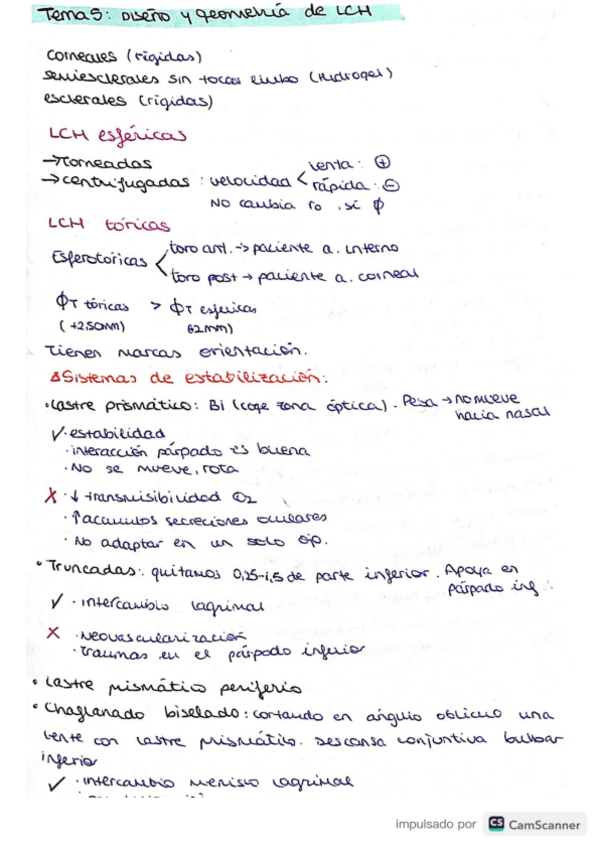 Tema 5: Diseño y geometría de LCH
corneales (rígidas)
semiesclerales sin tocar limbo (Hidrogel)
esclerales (rígidas)
LCH esféricas
→Torneadas
→centrifugadas: velocidad < lenta: ⊕
rápida: ⊖
No cambia ro, sí ϕ
LCH tóricas
Esferotóricas < toro ant. → paciente a. interno
toro post → paciente a. corneal
ϕT tóricas > ϕT esféricas
(+2.50mm)
Tienen marcas orientación.
Sistemas de estabilización:
•Lastre prismático: BI (coge zona óptica). Pesa → no mueve
hacia nasal
✓ · estabilidad
· interacción párpado es buena
· No se mueve, rota
X · ↓ transmisibilidad O2
· ↑ acumulos secreciones oculares
· No adaptar en un solo ojo.
• Truncadas: quitamos 0,25-1,5 de parte inferior. Apoya en
párpado inf.
✓ · intercambio lagrimal
X · Neovascularización
· Traumas en el párpado inferior
• Lastre prismático periferio
• Chaflanado biselado: cortando en ángulo oblicuo una
lente con lastre prismático. Descansa conjuntiva bulbar
inferior
✓ · intercambio menisco lagrimal
impulsado por CS CamScanner